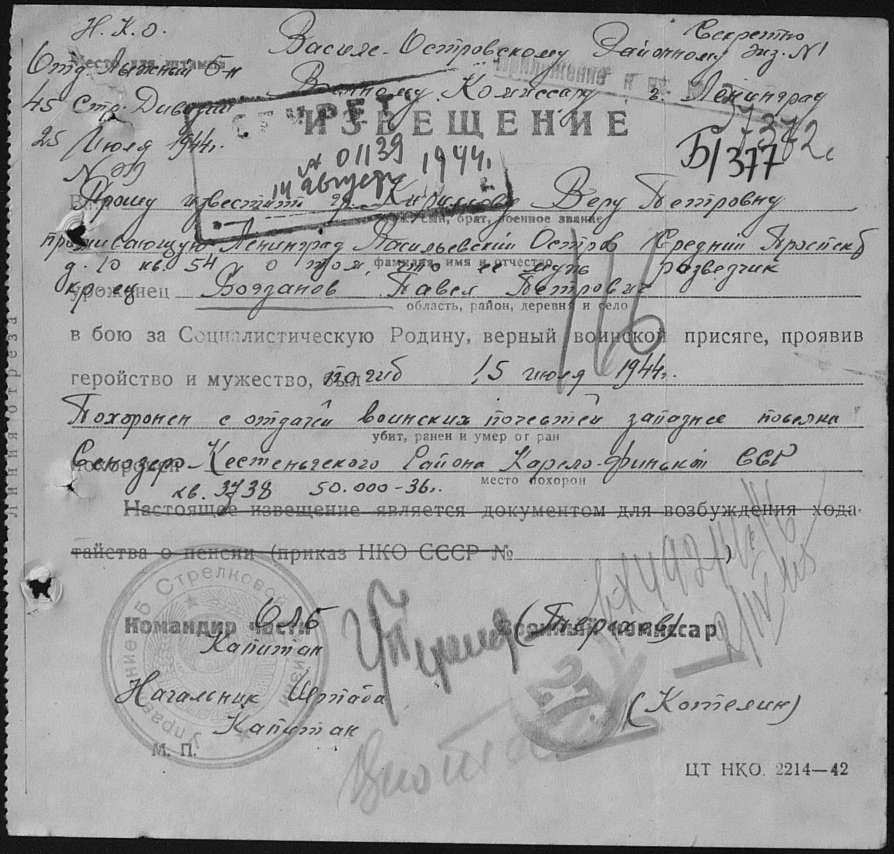 Н. К. О.
Секретно
Василе-Островскому Районному экз. №1
Место для штампа
Отд. Лыжный б-н
Приложение
Военному Комиссару г. Ленинград
45 Стр. Дивизии
СЕКРЕТ
ИЗВЕЩЕНИЕ
25 Июля 1944г.
№ 01139
14 августа 1944г.
7372с
Б/377
Прошу известить гр. Кириллову Веру Петровну
муж, сын, брат, военное звание
проживающую Ленинград Васильевский Остров Средний Проспект
фамилия, имя и отчество
д. 10 кв. 54 о том, что её муж разведчик
кр-ец
уроженец Богданов Павел Петрович
область, район, деревня и село
116
в бою за Социалистическую Родину, верный воинской присяге, проявив
геройство и мужество, был погиб 15 июля 1944г.
Похоронен с отдачей воинских почестей западнее поселка
убит, ранен и умер от ран
похоронен
Кестеньгского Района Карело-Финской ССР
место похорон
кв. 3738 50.000-36г.
Настоящее извещение является документом для возбуждения хода-
тайства о пенсии (приказ НКО СССР №)
линия отреза
Командир части ОЛБ
Военный комиссар
(Терехов)
Капитан
Начальник Штаба
Капитан
(Котелин)
27
М. П.
Управление 45 Стрелковой Дивизии
ЦТ НКО. 2214—42